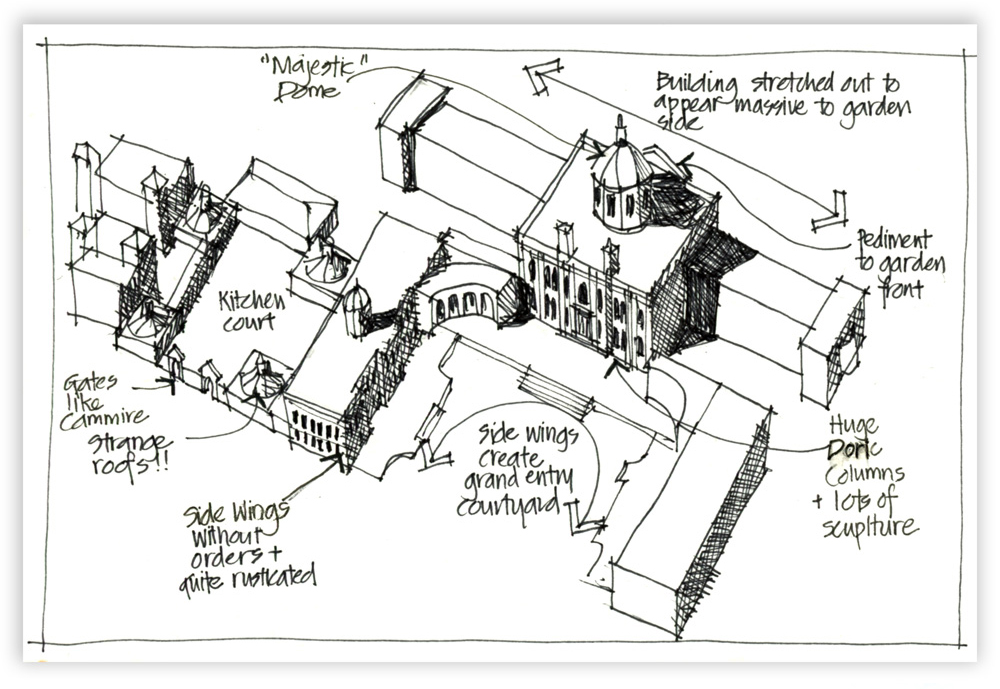 "Majestic"
Dome
Building stretched out to
appear massive to garden
side
Pediment
to garden
front
Kitchen
court
Gates
like
Cammire
Strange
roofs!!
Side wings
create
grand entry
courtyard
Huge
Doric
Columns
+ lots of
scuplture
Side Wings
without
orders +
quite rusticated